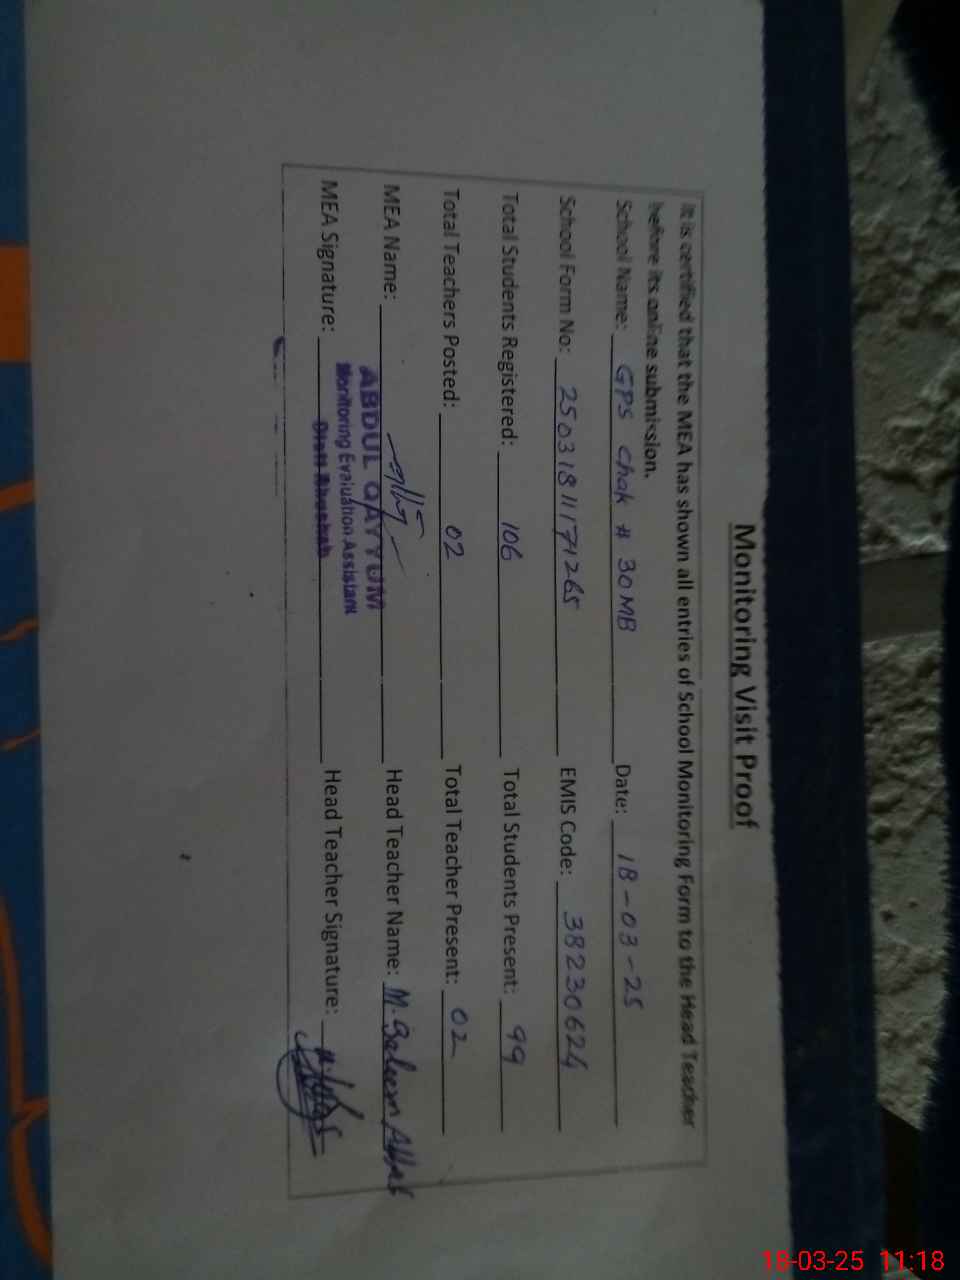 Monitoring Visit Proof
It is certified that the MEA has shown all entries of School Monitoring Form to the Head Teacher
before its online submission.
School Name: GPS Chak # 30MB Date: 18-03-25
School Form No: 25031811171265 EMIS Code: 38230624
Total Students Registered: 106 Total Students Present: 99
Total Teachers Posted: 02 Total Teacher Present: 02
MEA Name: Head Teacher Name: M. Saleem Abbas
ABDUL QAYYUM
Monitoring Evaluation Assistant
MEA Signature: Head Teacher Signature:
18-03-25 11:18